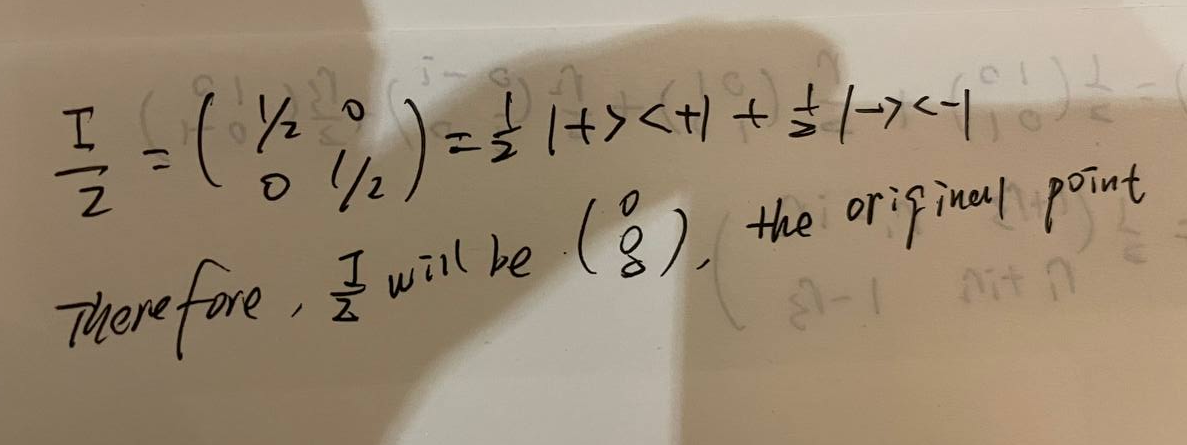 I/2 = ( 1/2 0 0 1/2 ) = 1/2 |+><+| + 1/2 |-><-|
Therefore, I/2 will be (0 0 0), the original point